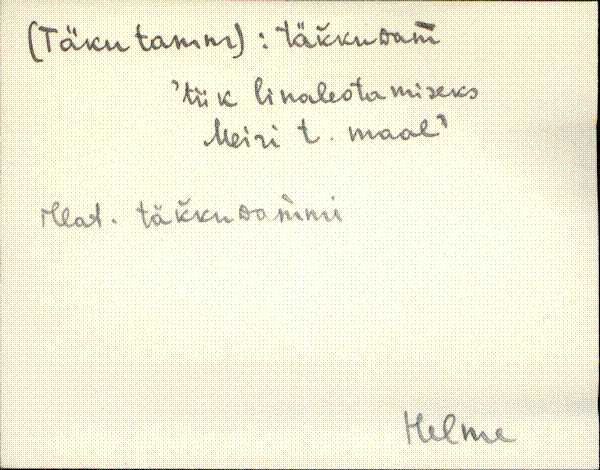 (Täku tamm) : täk̆kudam̄
'tiik linaleotamiseks
Meiri t. maal'
Illat. täk̆kudam̀mi
Helme